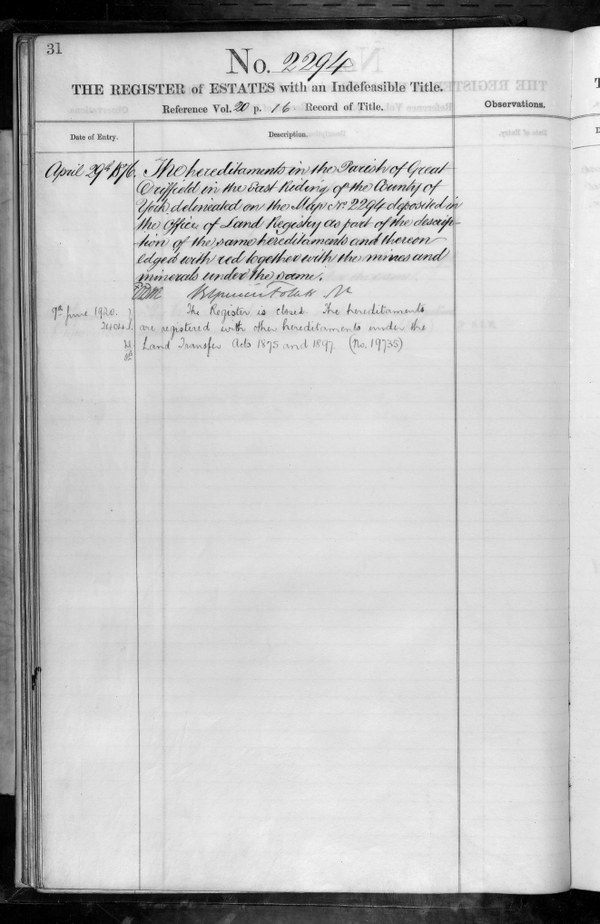 31
No. 2294
THE REGISTER of ESTATES with an Indefeasible Title.
Reference Vol. 20 p. 16 Record of Title.
Observations.
Date of Entry.
Description.
April 29th 1876. The hereditaments in the Parish of Great
Driffield in the East Riding of the County of
York delineated on the Map No. 2294 deposited in
the Office of Land Registry as part of the descrip-
-tion of the same hereditaments and thereon
edged with red together with the mines and
minerals under the same.
9th June 1920. The Register is closed. The hereditaments
are registered with other hereditaments under the
Land Transfer Acts 1875 and 1897 (No. 19735)